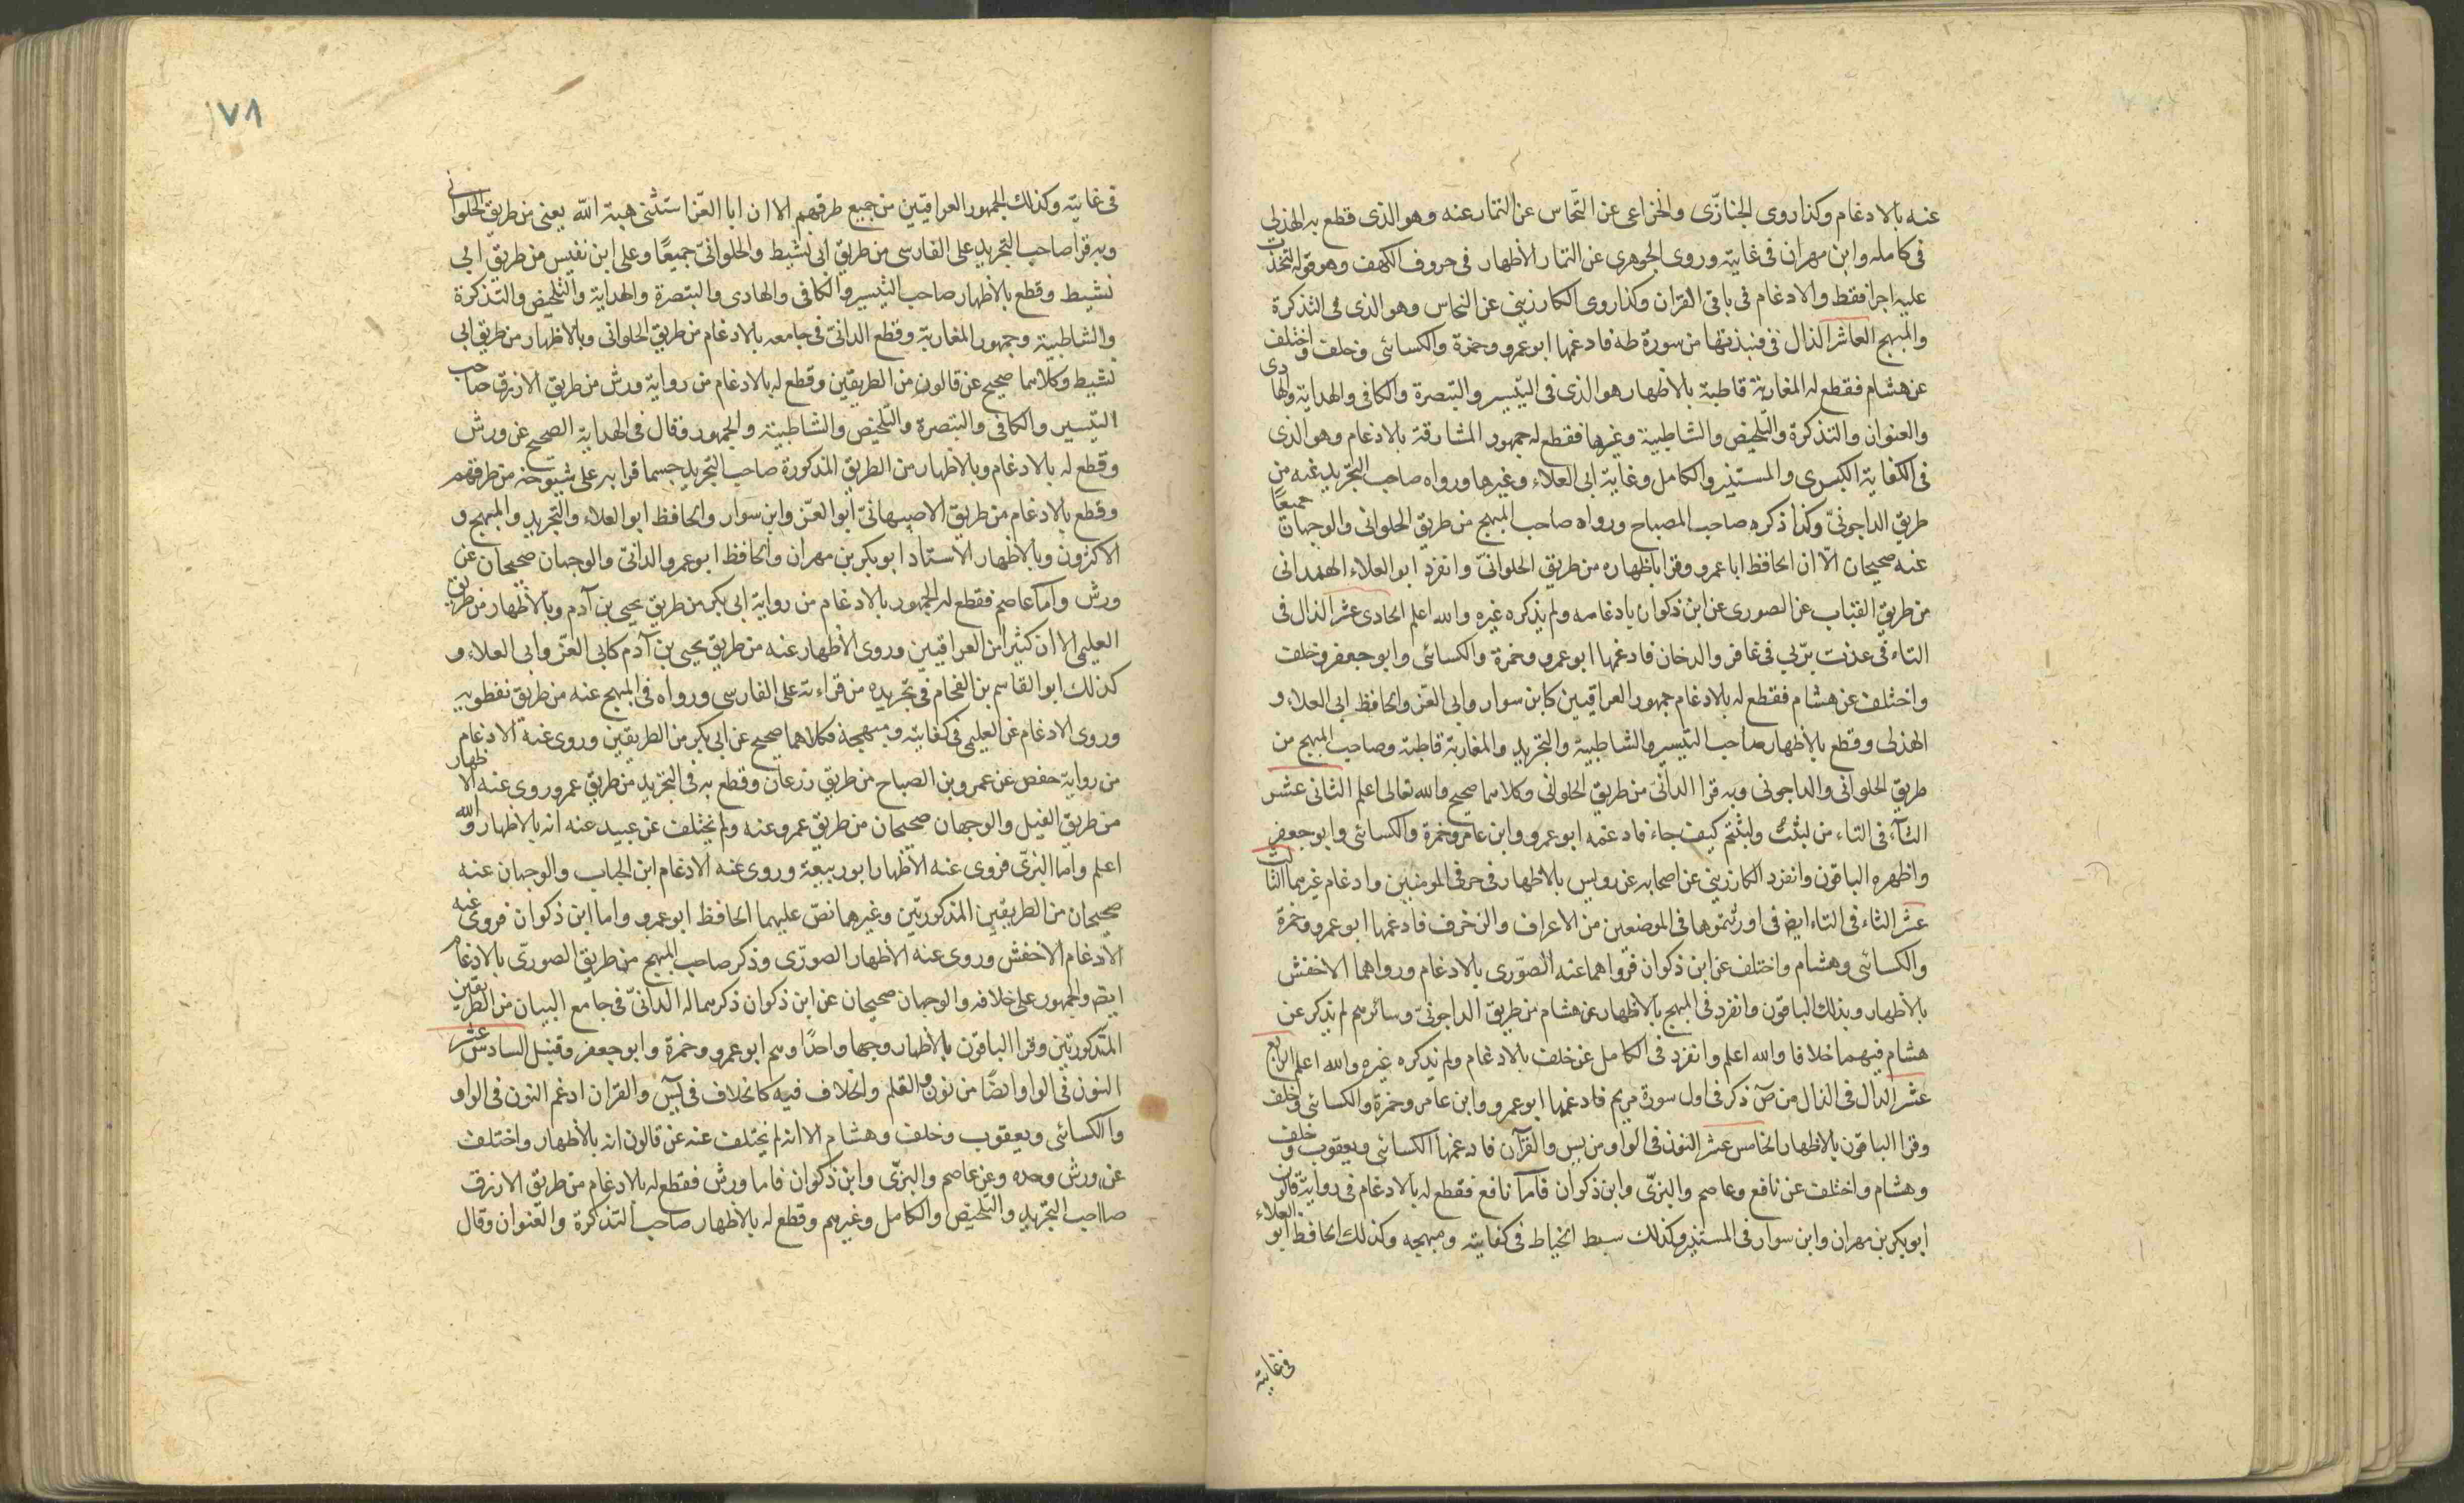 عنه بالادغام وكذا روى الجنازى والخزاعى عن النحاس عن التمار عنه وهو الذى قطع به الهذلى
فى كامله وابن مهران فى غايته وروى الجوهرى عن التمار الاظهار فى حروف الكهف وهو قوله لتخذت
عليه اجرا فقط والادغام فى باقى القران وكذا روى الكارزينى عن النحاس وهو الذى فى التذكرة
والمبهج العاشر الذال فى فنبذتها من سورة طه فادغمها ابو عمرو وحمزة والكسائى وخلف واختلف
عن هشام فقطع له المغاربة قاطبة بالاظهار هو الذى فى التيسير والتبصرة والكافى والهداية والهادى
والعنوان والتذكرة والتلخيص والشاطبية وغيرها فقطع له جمهور المشارقة بالادغام وهو الذى
فى الكفاية الكبرى والمستنير والكامل وغاية ابى العلاء وغيرها ورواه صاحب التجريد عنه من
طريق الداجونىّ وكذا ذكره صاحب المصباح ورواه صاحب المبهج من طريق الحلوانى والوجهان جميعًا
عنه صحيحان الّا ان الحافظ ابا عمرو وقرا باظهاره من طريق الحلوانىّ وانفرد ابو العلاء الهمدانى
من طريق القباب عن الصورى عن ابن ذكوان بادغامه ولم يذكره غيره والله اعلم الحادى عشر الذال فى
التاء فى عذت بربى فى غافر والدخان فادغمها ابو عمرو وحمزة والكسائى وابو جعفر وخلف
واختلف عن هشام فقطع له بالادغام جمهور العراقيين كابن سوار وابى العزّ والحافظ ابى العلاء و
الهذلى وقطع بالاظهار صاحب التيسير والشاطبية والتجريد والمغاربة قاطبة وصاحب المبهج من
طريق الحلوانى والداجونى وبه قرا الدانىّ من طريق الحلوانى وكلاهما صحيح والله تعالى اعلم الثانى عشر
الثآء فى التاء من لبثت ولبثتم كيف جاء فادغمه ابو عمرو وابن عامر وحمزة والكسائى وابو جعفر
واظهره الباقون وانفرد الكارزينى عن اصحابه عن رويس بالاظهار فى حرفى المومنين وادغام غيرهما الثالث
عشر الثاء فى التاء ايض فى اورثتموها فى الموضعين من الاعراف والزخرف فادغمها ابو عمرو وحمزة
والكسائى وهشام واختلف عن ابن ذكوان فرواهما عنه الصّورى بالادغام ورواهما الاخفش
بالاظهار وبذلك الباقون وانفرد فى المبهج بالاظهار عن هشام من طريق الداجونىّ وسائرهم لم يذكر عن
هشام فيهما خلافا والله اعلم وانفرد فى الكامل عن خلف بالادغام ولم يذكره غيره والله اعلم الرابع
عشر الدال فى الذال من صٓ ذكر فى اول سورة مريم فادغمها ابو عمرو وابن عامر وحمزة والكسائى وخلف
وقرا الباقون بالاظهار الخامس عشر النون فى الواو من يس والقرآن فادغمها الكسائى ويعقوب وخلف
وهشام واختلف عن نافع وعاصم والبزىّ وابن ذكوان فامّا نافع فقطع له بالادغام فى رواية قالون
ابو بكر بن مهران وابن سوار فى المستنير وكذلك سبط الخياط فى كفايته ومبهجه وكذلك الحافظ ابو العلاء
فى غايته
١٧٨
فى غايته وكذلك الجمهور العراقيين من جميع طرقهم الا ان ابا العزّ استثنى هبة الله يعنى من طريق الحلوانى
وبه قرا صاحب التجريد على الفارسى من طريق ابى نشيط والحلوانىّ جميعًا وعلى ابن نفيس من طريق ابى
نشيط وقطع بالاظهار صاحب التيسير والكافى والهادى والتبصرة والهداية والتلخيص والتذكرة
والشاطبية وجمهور المغاربة وقطع الدانىّ فى جامعه بالادغام من طريق الحلوانى وبالاظهار من طريق ابى
نشيط وكلاهما صحيح عن قالون من الطريقين وقطع له بالادغام من رواية ورش من طريق الازرق صاحب
التيسير والكافى والتبصرة والتلخيص والشاطبية والجمهور وقال فى الهداية الصحيح عن ورش
وقطع له بالادغام وبالاظهار من الطريق المذكورة صاحب التجريد حسما قرا به على شيوخه من طرقهم
وقطع بالادغام من طريق الاصبهانىّ ابو العزّ وابن سوار والحافظ ابو العلاء والتجريد والمبهج و
الاكثرون وبالاظهار الاستاد ابو بكر بن مهران والحافظ ابو عمرو الدانىّ والوجهان صحيحان عن
ورش وامّا عاصم فقطع له الجمهور بالادغام من رواية ابى بكر من طريق يحيى بن آدم وبالاظهار من طريق
العليمى الا ان كثيرا من العراقيين وروى الاظهار عنه من طريق يحيى بن آدم كابى العزّ وابى العلاء و
كذلك ابو القاسم بن الفحام فى تجريده من قراءته على الفارسى ورواه فى المبهج عنه من طريق نفطويه
وروى الادغام عن العليمى فى كفايته ومبهجه فكلاهما صحيح عن ابى بكر من الطريقين وروى عنه الادغام
من رواية حفص عن عمرو بن الصباح من طريق زرعان وقطع به فى التجريد من طريق عمرو وروى عنه الاظهار
من طريق الفيل والوجهان صحيحان من طريق عمرو عنه ولم يختلف عن عبيد عنه انه بالاظهار والله
اعلم واما البزىّ فروى عنه الاظهار ابو ربيعة وروى عنه الادغام ابن الحباب والوجهان عنه
صحيحان من الطريقين المذكورتين وغيرهما نصّ عليهما الحافظ ابو عمرو واما ابن ذكوان فروى عنه
الادغام الاخفش وروى عنه الاظهار الصورّى وذكر صاحب المبهج من طريق الصورىّ بالادغام
ايض والجمهور على خلافه والوجهان صحيحان عن ابن ذكوان ذكرهما له الدانىّ فى جامع البيان من الطريقين
المذكورتين وقرا الباقون بالاظهار وجها واحدًا وهم ابو عمرو وحمزة وابو جعفر وقنبل السادس عشر
النون فى الواو ايضًا من نون والقلم والخلاف فيه كالخلاف فى يسٓ والقران ادغم النون فى الواو
والكسائى ويعقوب وخلف وهشام الا انه لم يختلف عنه عن قالون انه بالاظهار واختلف
عن ورش وحده وعن عاصم والبزىّ وابن ذكوان فاما ورش فقطع له بالادغام من طريق الازرق
صاحب التجريد والتلخيص والكامل وغيرهم وقطع له بالاظهار صاحب التذكرة والعنوان وقال